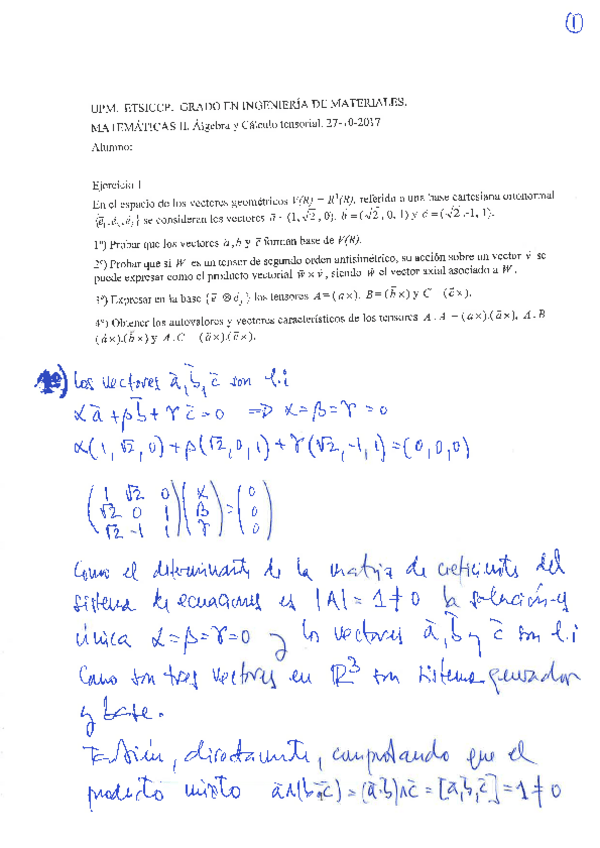 ①
UPM. ETSICCP. GRADO EN INGENIERÍA DE MATERIALES.
MATEMÁTICAS II. Álgebra y Cálculo tensorial. 27-10-2017
Alumno:
Ejercicio 1
En el espacio de los vectores geométricos V(R) = R³(R), referido a una base cartesiana ortonormal
se consideran los vectores a = (1, √2, 0), b = (√2, 0, 1) y c = (√2, -1, 1).
1º) Probar que los vectores a, b y c forman base de V(R).
2º) Probar que si W es un tensor de segundo orden antisimétrico, su acción sobre un vector v se
puede expresar como el producto vectorial w × v, siendo w el vector axial asociado a W.
3º) Expresar en la base {e ⊗ e} los tensores A = (a×), B = (b×) y C = (c×).
4º) Obtener los autovalores y vectores característicos de los tensores A.A = (a×).(a×), A.B
(a×).(b×) y A.C = (a×).(c×).
1º) Los vectores a̅, b̅, c̅ son l.i
αa̅ + βb̅ + γc̅ = 0 ⇒ α = β = γ = 0
α(1, √2, 0) + β(√2, 0, 1) + γ(√2, -1, 1) = (0, 0, 0)
(1 √2 0) (α) (0)
(√2 0 1) (β) = (0)
(√2 -1 1) (γ) (0)
Como el determinante de la matriz de coeficientes del
sistema de ecuaciones es |A| = 1 ≠ 0 la solución es
única α = β = γ = 0 y los vectores a̅, b̅ y c̅ son l.i
Como son tres vectores en R³ son sistema generador
y base.
También, directamente, comprobando que el
producto mixto a̅∧(b̅.c̅) = (a̅.b̅)∧c̅ = [a̅,b̅,c̅] = 1 ≠ 0